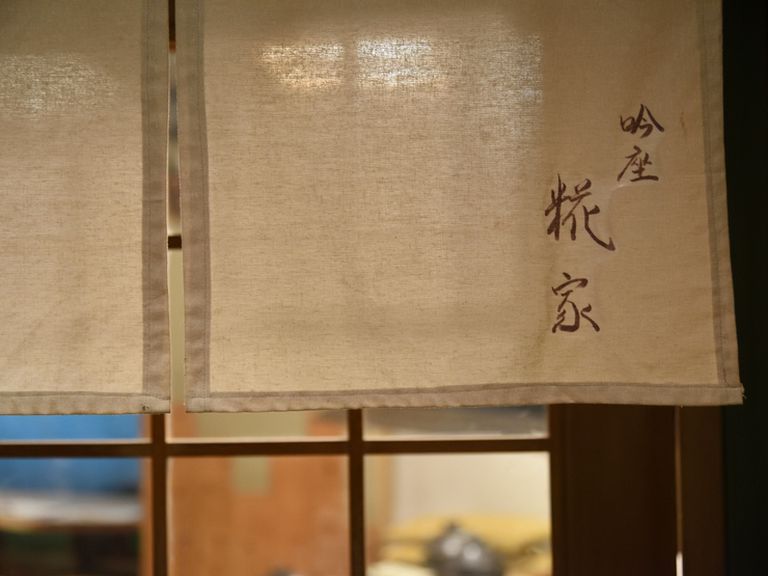 吟座
糀家